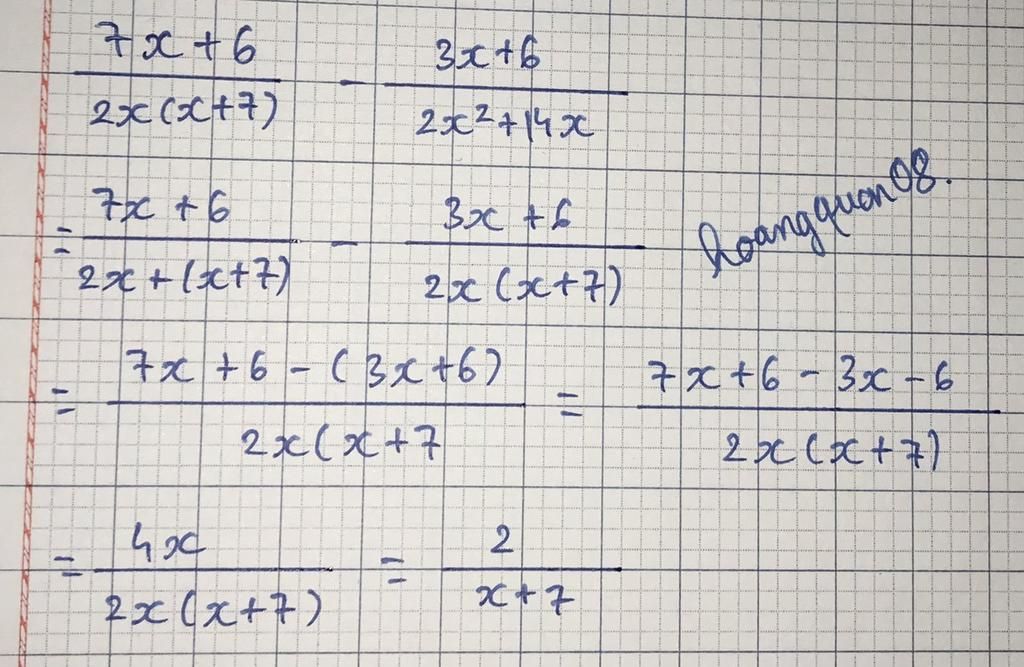 7x + 6 / 2x(x+7) - 3x+6 / 2x²+14x
= 7x + 6 / 2x + (x+7) - 3x + 6 / 2x (x+7)
hoangquan08.
= 7x + 6 - (3x+6) / 2x(x+7 = 7x+6 - 3x - 6 / 2x(x+7)
= 4x / 2x(x+7) = 2 / x+7